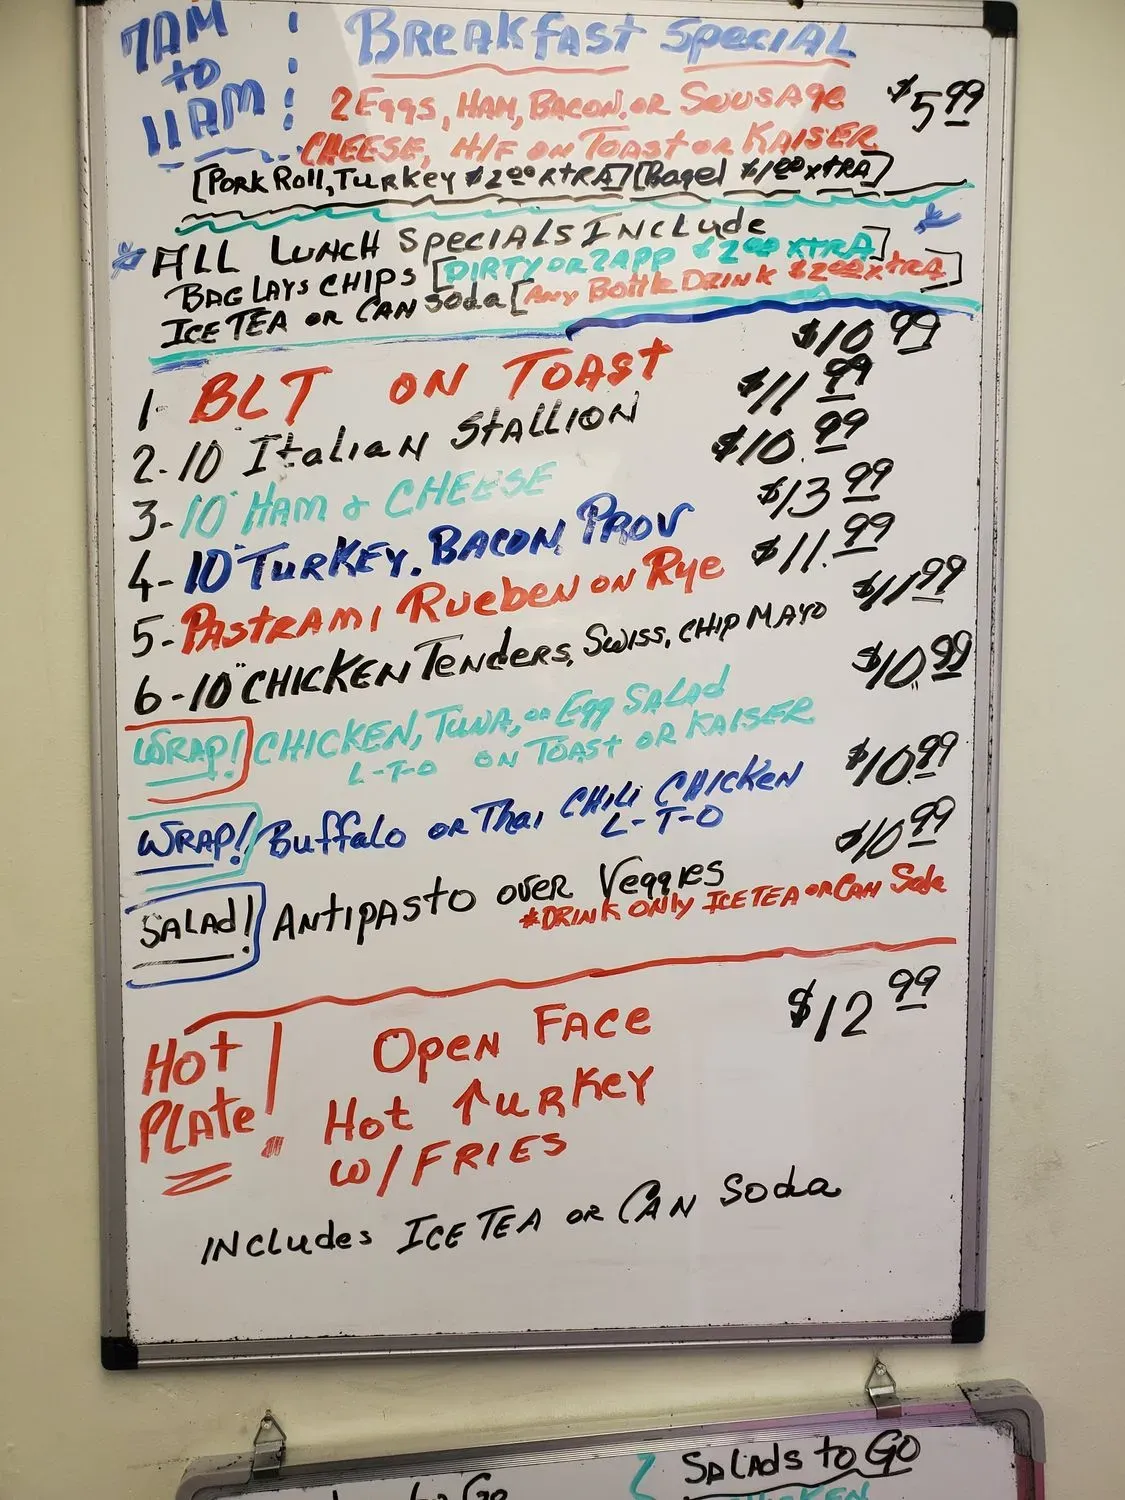 7AM
to
11AM
BREAKFAST SPECIAL
2 EGGS, HAM, BACON, OR SAUSAGE $5 99
CHEESE, H/F ON TOAST OR KAISER
[PORK ROLL, TURKEY $2 00 XTRA] [Bagel $1 00 XTRA]
* ALL LUNCH SPECIALS INCLUDE *
BAG LAYS CHIPS [DIRTY OR ZAPP $2 00 XTRA]
ICE TEA OR CAN Soda [ANY BOTTLE DRINK $2 00 XTRA]
1- BLT ON TOAST $10 99
2-10" Italian STALLION $11 99
3-10" HAM & CHEESE $10.99
4-10" TURKEY, BACON, PROV $13 99
5-PASTRAMI RUEBEN ON RYE $11.99
6-10" CHICKEN TENDERS, SWISS, CHIP MAYO $11 99
WRAP! CHICKEN, TUNA, OR Egg SALAD $10.99
L-T-O ON TOAST OR KAISER
WRAP! Buffalo OR Thai CHILI CHICKEN $10.99
L-T-O
SALAD! ANTIPASTO OVER VEGGIES $10 99
*DRINK ONLY ICE TEA OR CAN Soda
HOT PLATE! OPEN FACE $12 99
HOT TURKEY
W/FRIES
INCLUDES ICE TEA OR CAN Soda
SALADS TO GO